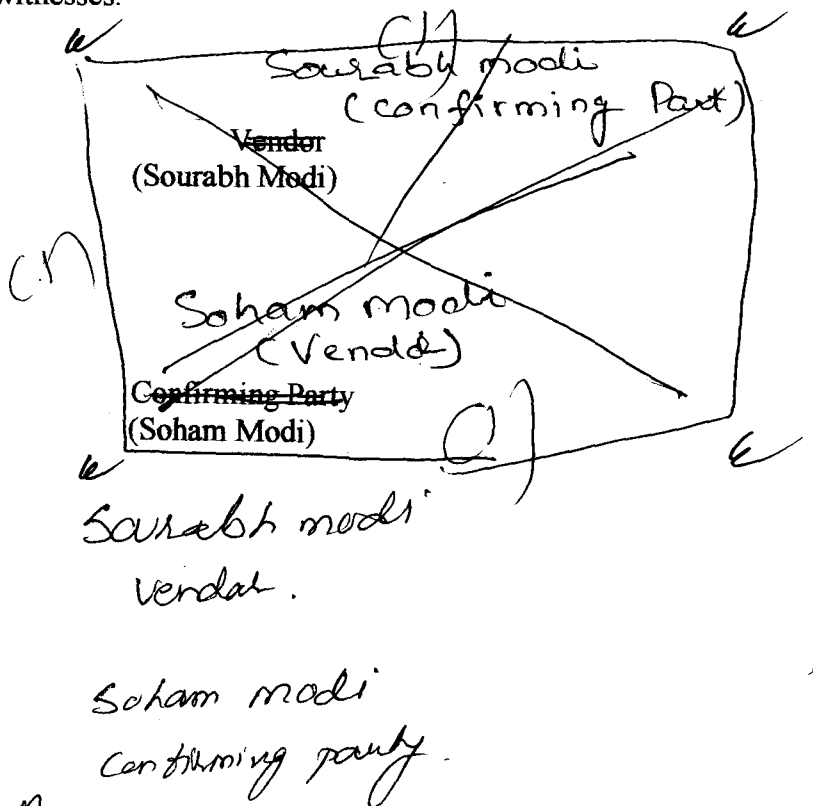 witnesses.
Sourabh modi
(confirming Part)
Vendor
(Sourabh Modi)
Soham modi
(Vendor)
Confirming Party
(Soham Modi)
Sourabh modi
Vendor.
Soham modi
Confirming party.